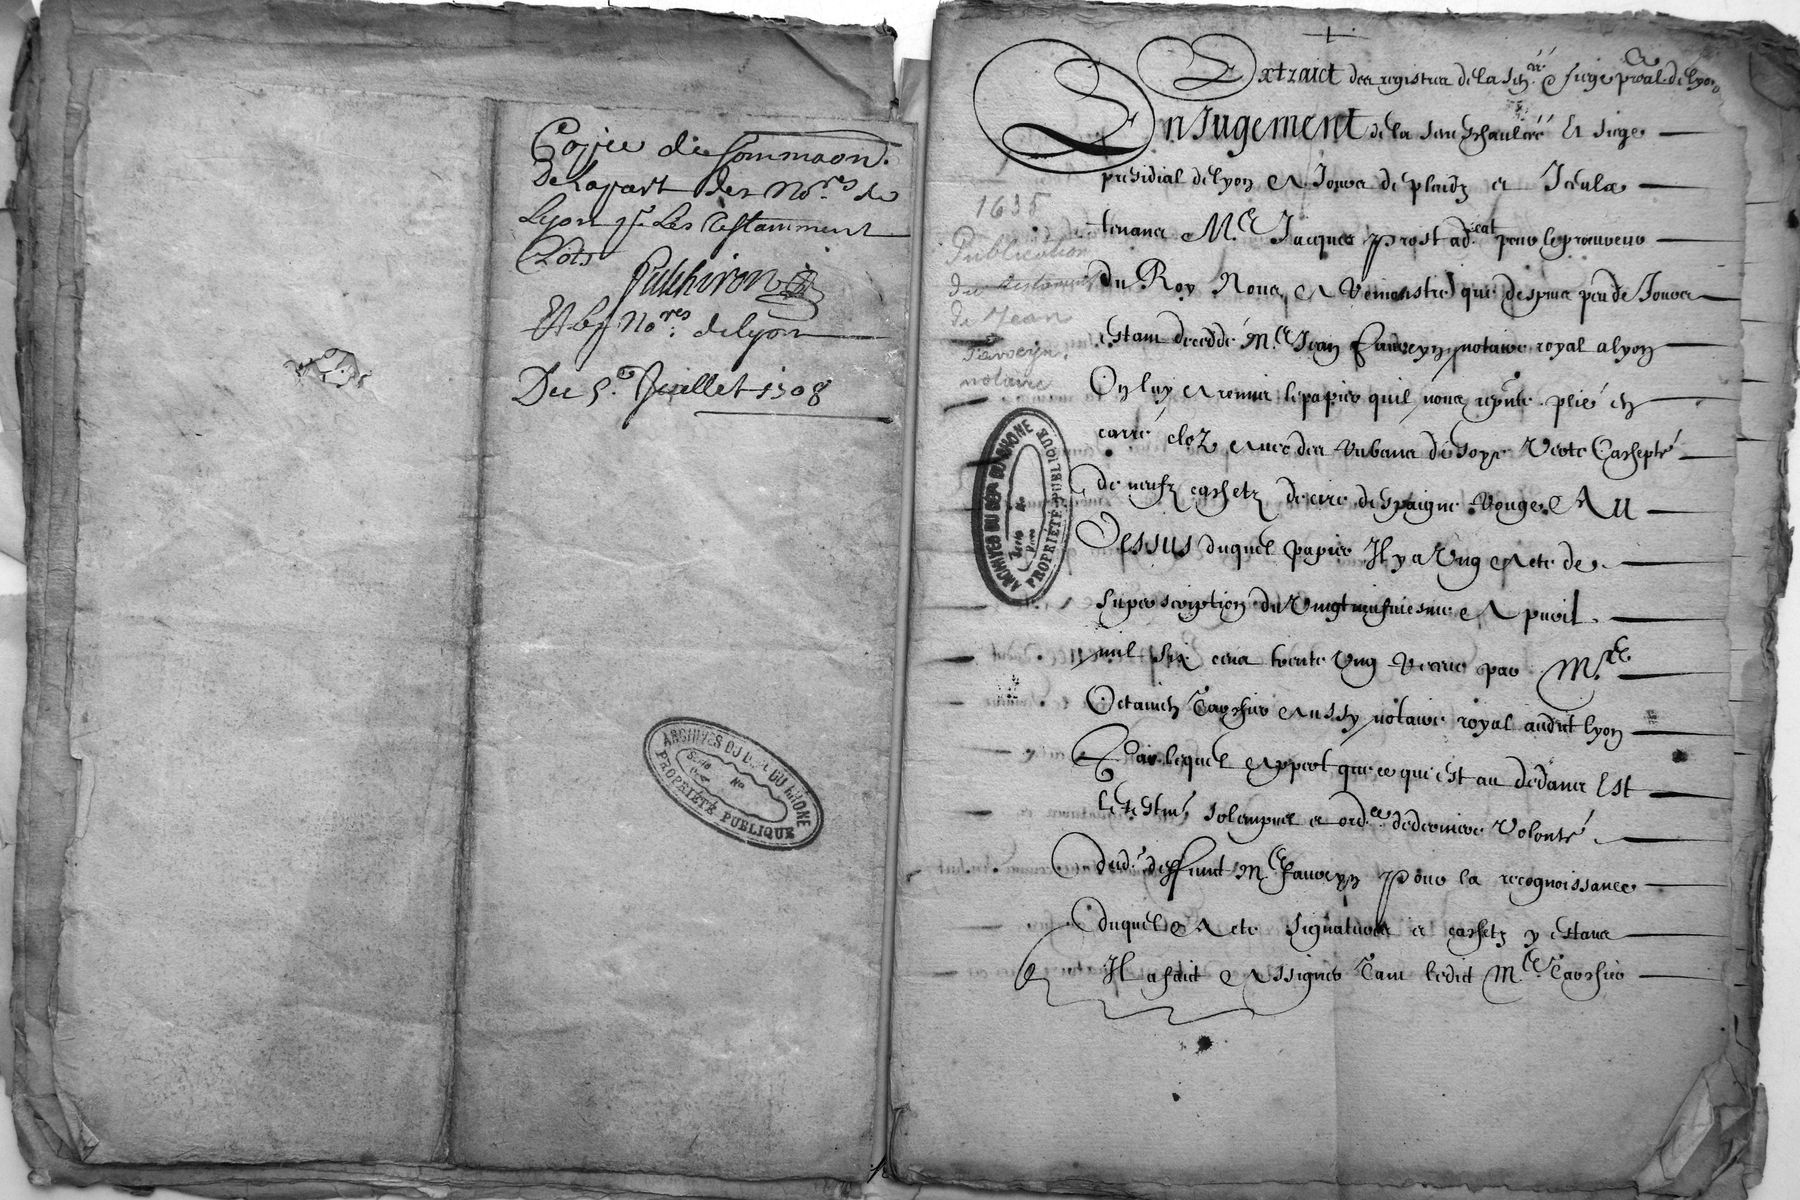 Copie de sommaon.
De la part des No.res de
Lyon p.r Les testamment
Clots
Puthiron
Et les No.res de lyon
Du 5.e Juillet 1708
ARCHIVES DU DÉP.t DU RHONE
PROPRIÉTÉ PUBLIQUE
Serie No
Extraict des registres de la Sen.ée & siege p̃ñal de lyon
En Jugement de la Seneschaulcée Et siege
presidial de lyon Et Jours de plaidz et Iceulx
tenans M.e Jacques Prost ad.cat pour le procureur
du Roy Nous a remonstré que despuis peu de Jours
estant decedde M.e Jean Faurcyn notaire royal a lyon
On luy a remis le papier quil nous rep̃nte plié en
carré cloz avec des rubans de soye verte Cachepté
de neufz cachetz de cire despaigne rouge Au
Dessus duquel papier Il y a Ung Acte de
superscription du Vingt neufviesme Apvril
mil six cens trente Ung receu par M.re
Octavien Carshier Aussy notaire royal audit lyon
Par lequel Appert que ce qui est au dedans Est
le testm.t solempnel et ord.ce de derniere Volonté
dud.t deffunt M.e Faurcyn Pour la recognoissance
duquel Acte Signatures et cachetz y estans
Il a faict Assigner Tant ledict M.e Carshier
1635
Publication
du testament
de Jean
Faurcyn
notaire
ARCHIVES DU DÉP.t DU RHONE
PROPRIÉTÉ PUBLIQUE
Serie No